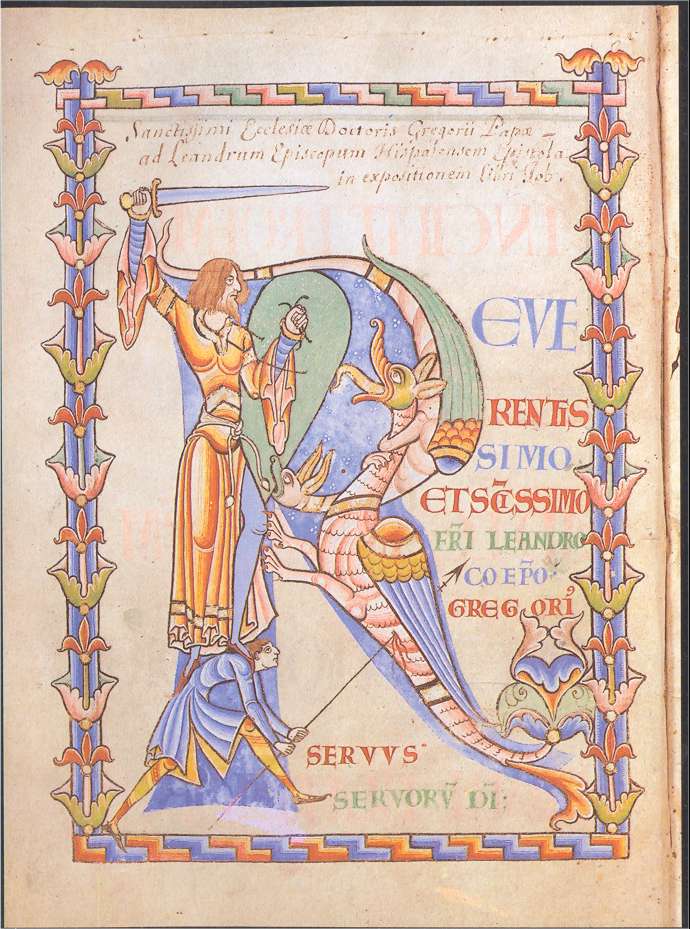 Sanctissimi Ecclesiæ Doctoris Gregorii Papæ
ad Leandrum Episcopum Hispalensem Epistola
in expositionem libri Job.
EVE
RENTIS
SIMO
ET SC̄ISSIMO
FR̄I LEANDRO
COEP̄O·
GREGORI᾿
SERVVS
SERVORV̄ DĪ: